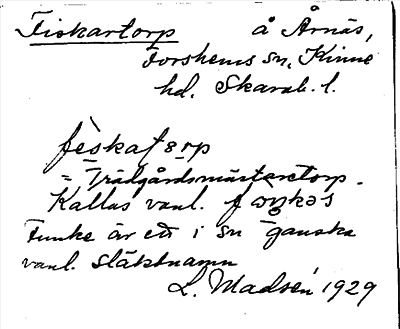 Fiskartorp å Årnäs,
Forshems sn, Kinne
hd. Skarab. l.
= Trädgårdsmästaretorp.
Kallas vanl.
Funke är ett i sn ganska
vanl. släktnamn
L. Madsén 1929